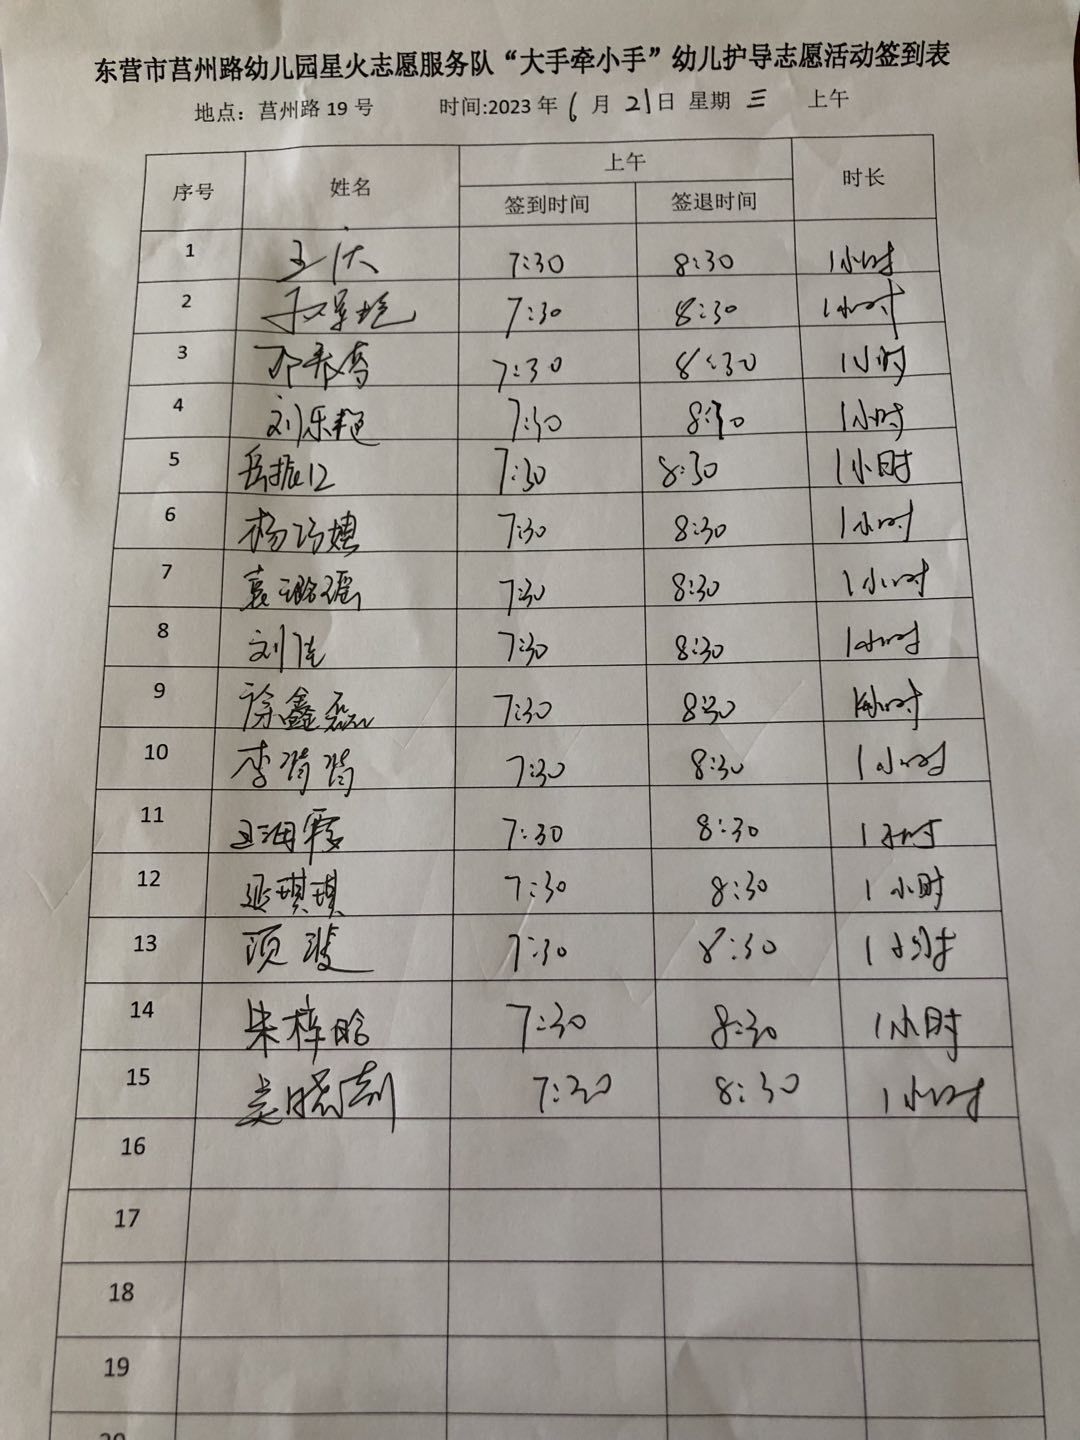 东营市莒州路幼儿园星火志愿服务队“大手牵小手”幼儿护导志愿活动签到表
地点：莒州路 19 号 时间:2023 年 6 月 21 日 星期 三 上午
序号 姓名 上午 时长
签到时间 签退时间
1 7:30 8:30 1小时
2 7:30 8:30 1小时
3 7:30 8:30 1小时
4 刘乐艳 7:30 8:30 1小时
5 7:30 8:30 1小时
6 杨巧娉 7:30 8:30 1小时
7 袁璐瑶 7:30 8:30 1小时
8 刘佳 7:30 8:30 1小时
9 徐鑫磊 7:30 8:30 1小时
10 李箐箐 7:30 8:30 1小时
11 王海霞 7:30 8:30 1小时
12 延琪琪 7:30 8:30 1小时
13 项波 7:30 8:30 1小时
14 朱梓晗 7:30 8:30 1小时
15 7:30 8:30 1小时
16
17
18
19
20